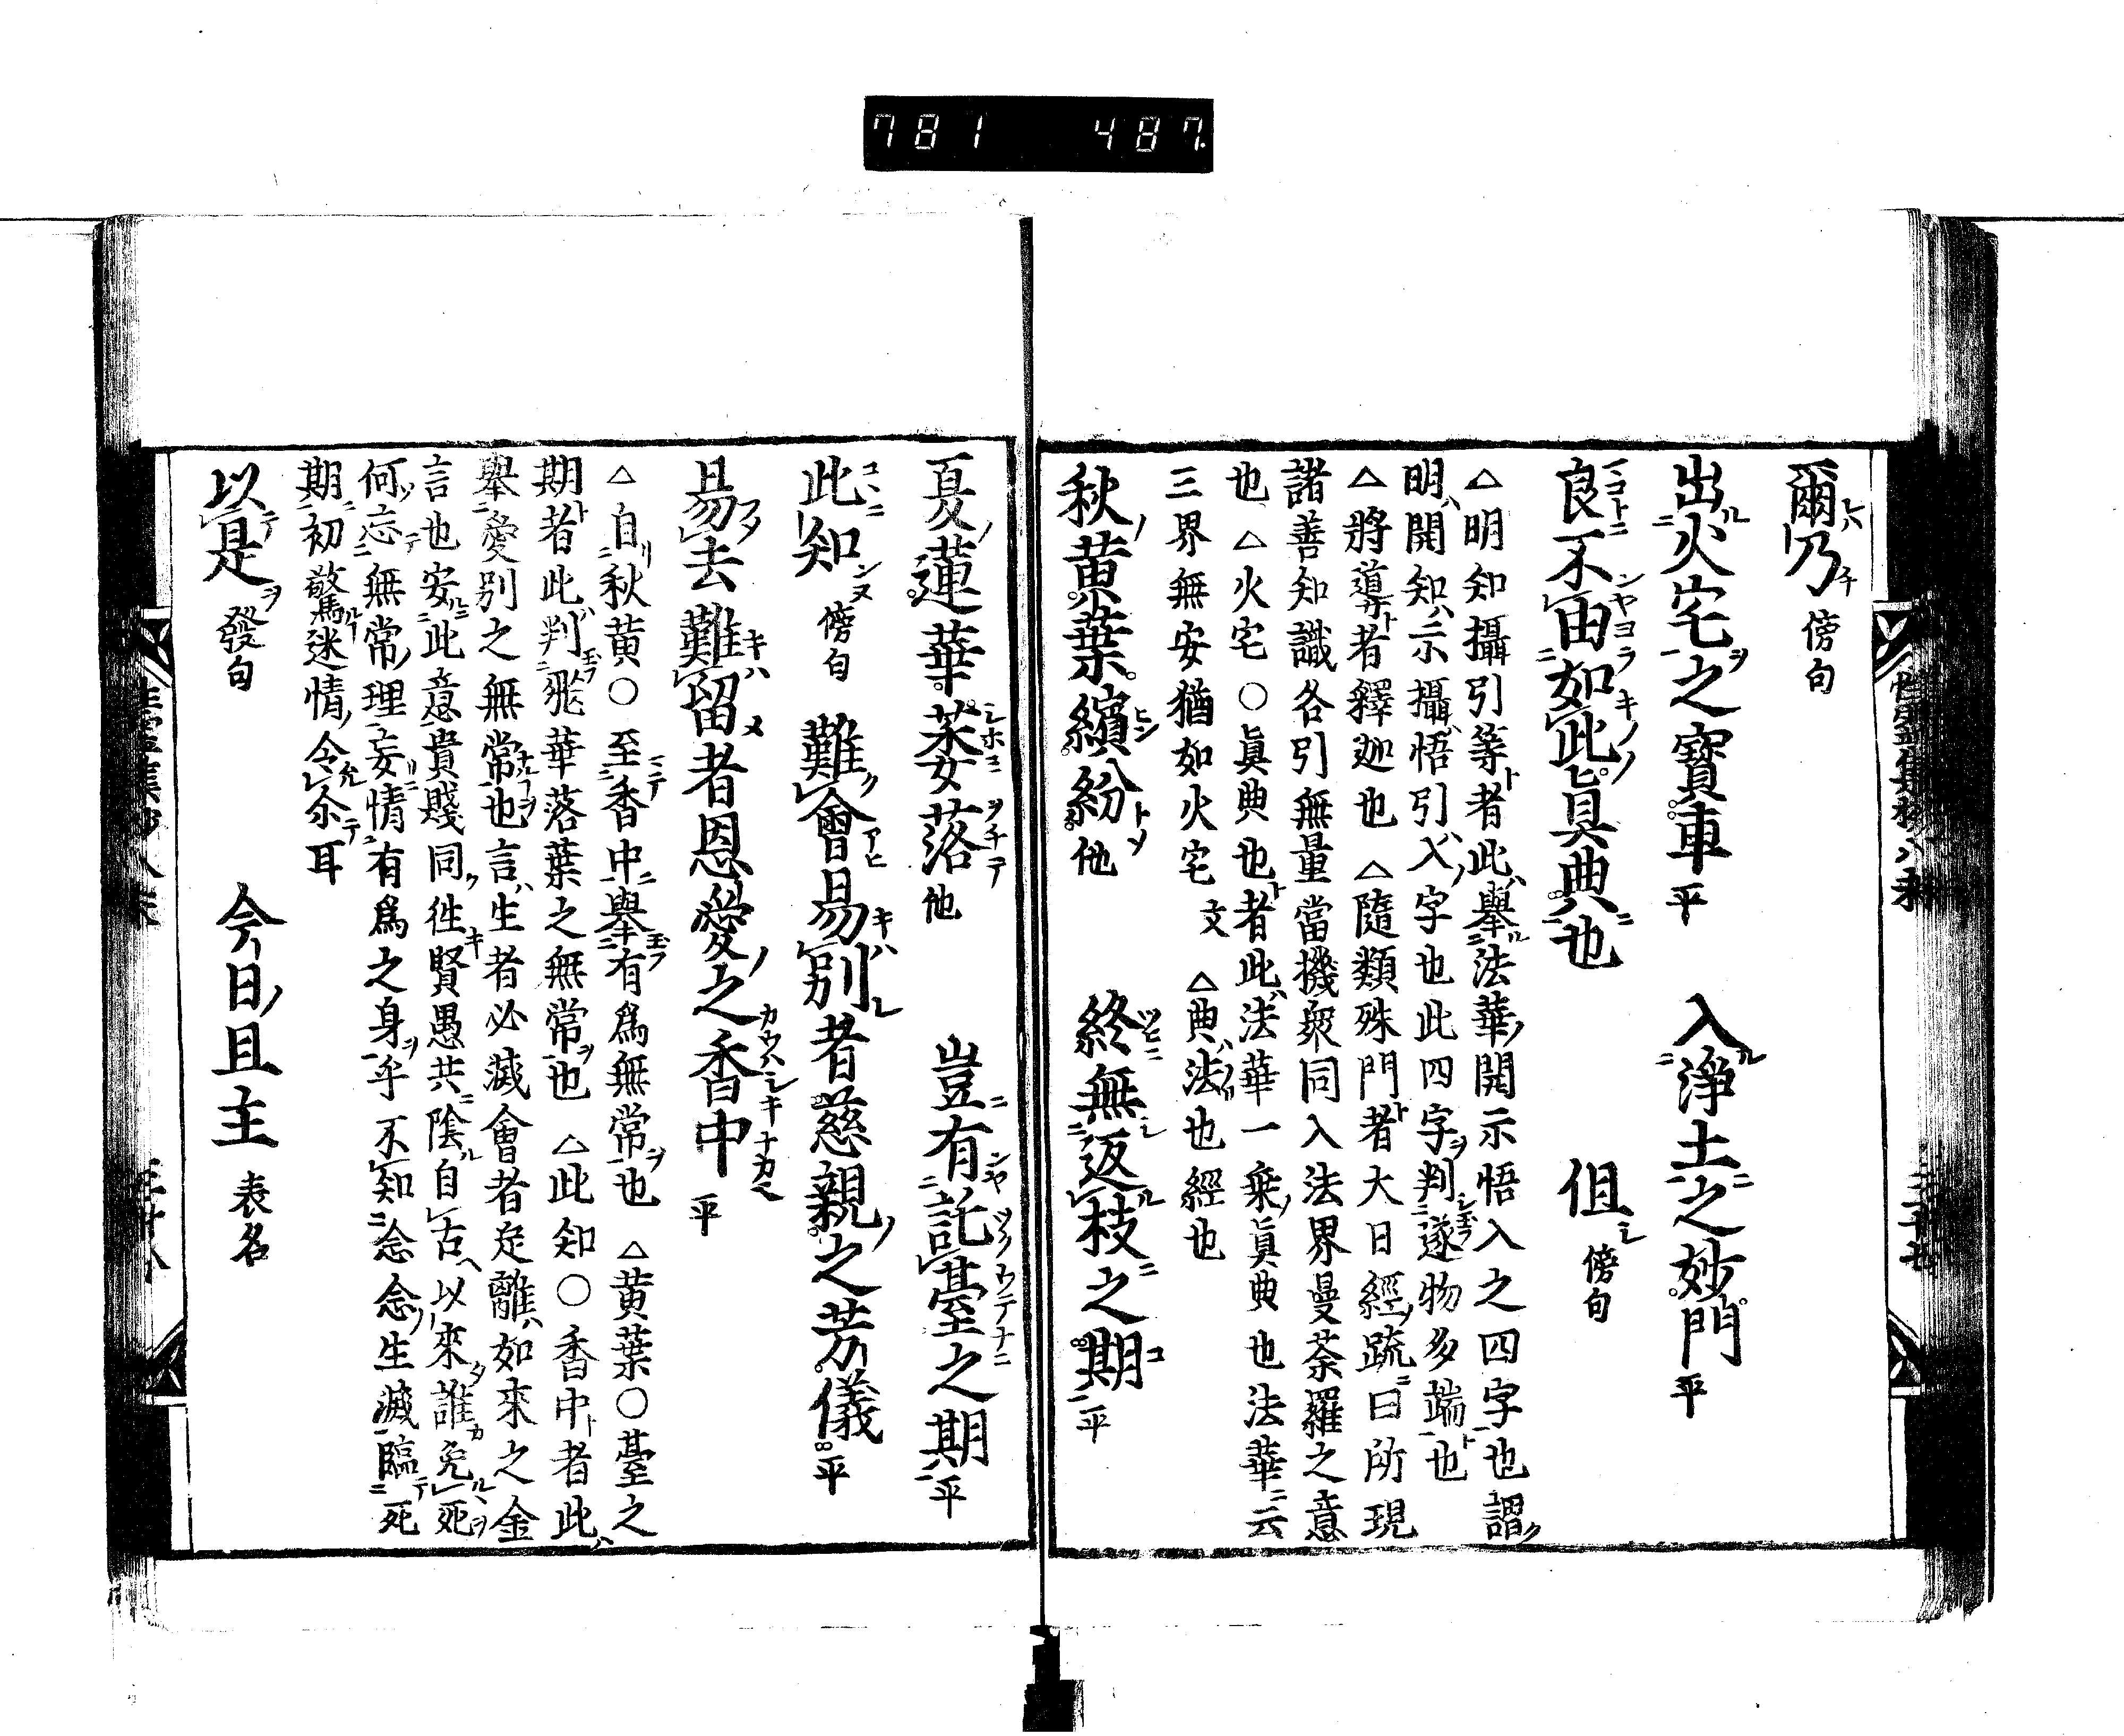 781 487.
爾乃 傍句
出火宅之寶車 平 入淨土之妙門 平
良不由如此眞典也 但 傍句
△明知攝引等者此擧法華開示悟入之四字也謂
明開知示攝悟引入字也此四字判遂物多端也
△將導者釋迦也△隨類殊門者大日經疏曰所現
諸善知識各引無量當機衆同入法界曼荼羅之意
也△火宅〇眞典也者此法華一乗眞典也法華云
三界無安猶如火宅文△典法也經也
秋黄葉繽紛 他 終無返枝之期 平
夏蓮華萎落 他 豈有託臺之期 平
此知 傍句 難會易別者慈親之芳儀 平
易去難留者恩愛之香中 平
△自秋黄〇至香中擧有爲無常也△黄葉〇臺之
期者此判飛華落葉之無常也△此知〇香中者此
擧愛別之無常也言生者必滅會者定離如來之金
言也安此意貴賤同徃賢愚共陰自古以來誰免死
何忘無常理妄情有爲之身乎不知念念生滅臨死
期初驚迷情令尒耳
以是 發句 今日且主 表名